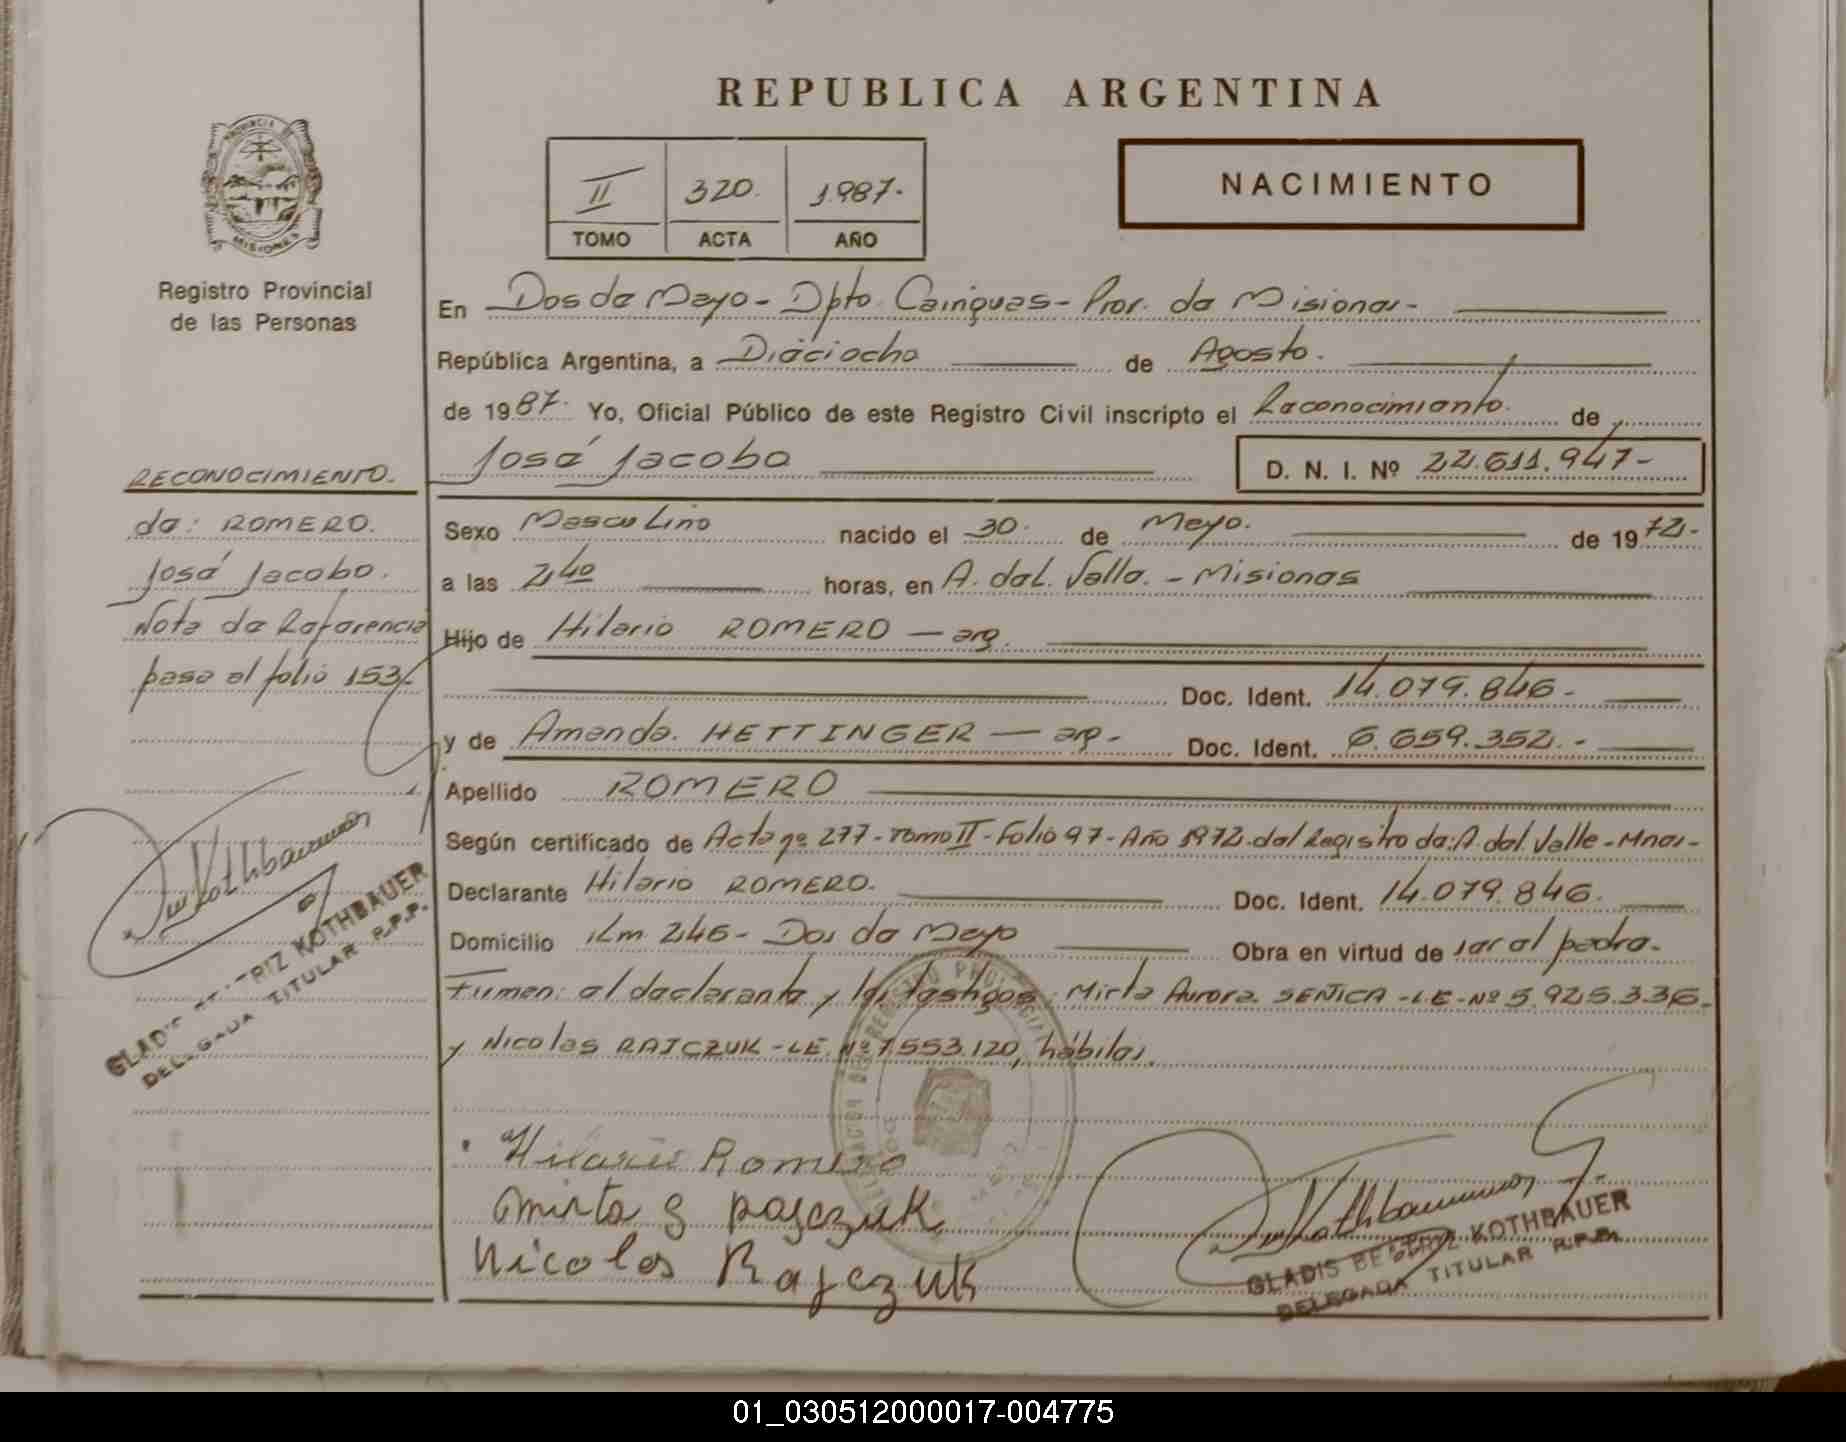 REPUBLICA ARGENTINA
II 320. 1.987.-
TOMO ACTA AÑO
NACIMIENTO
PROVINCIA DE MISIONES
Registro Provincial
de las Personas
En Dos de Mayo - Dpto. Cainguas - Prov. de Misiones -
República Argentina, a Dieciocho de Agosto.
de 1987. Yo, Oficial Público de este Registro Civil inscripto el Reconocimiento. de
José Jacobo D. N. I. Nº 22.611.947-
RECONOCIMIENTO.
de: ROMERO.
José Jacobo.
Nota de Referencia
pasa al folio 153.-
Sexo Masculino nacido el 30. de Mayo. de 1972.-
a las 2,40 horas, en A. del Valle. - Misiones
Hijo de Hilario ROMERO — arg.
Doc. Ident. 14.079.846-
y de Amanda. HETTINGER — arg- Doc. Ident. 6.659.352.-
Apellido ROMERO
Según certificado de Acta nº 277- Tomo II- Folio 97- Año 1972. del Registro de: A. del Valle - Mnes-
Declarante Hilario ROMERO. Doc. Ident. 14.079.846.
Domicilio Km 246- Dos de Mayo Obra en virtud de ser el padre.
Firman: el declarante y los testigos: Mirta Aurora SEÑICA -L.E-Nº 5.925.336-
y Nicolas RAJCZUK -L.E. Nº 7.553.120, hábiles.
Hilario Romero
Mirta S Rajczuk
Nicolas Rajczuk
Kothbauer
GLADIS BEATRIZ KOTHBAUER
DELEGADA TITULAR R.P.P.
Kothbauer
GLADIS BEATRIZ KOTHBAUER
DELEGADA TITULAR R.P.P.
01_030512000017-004775